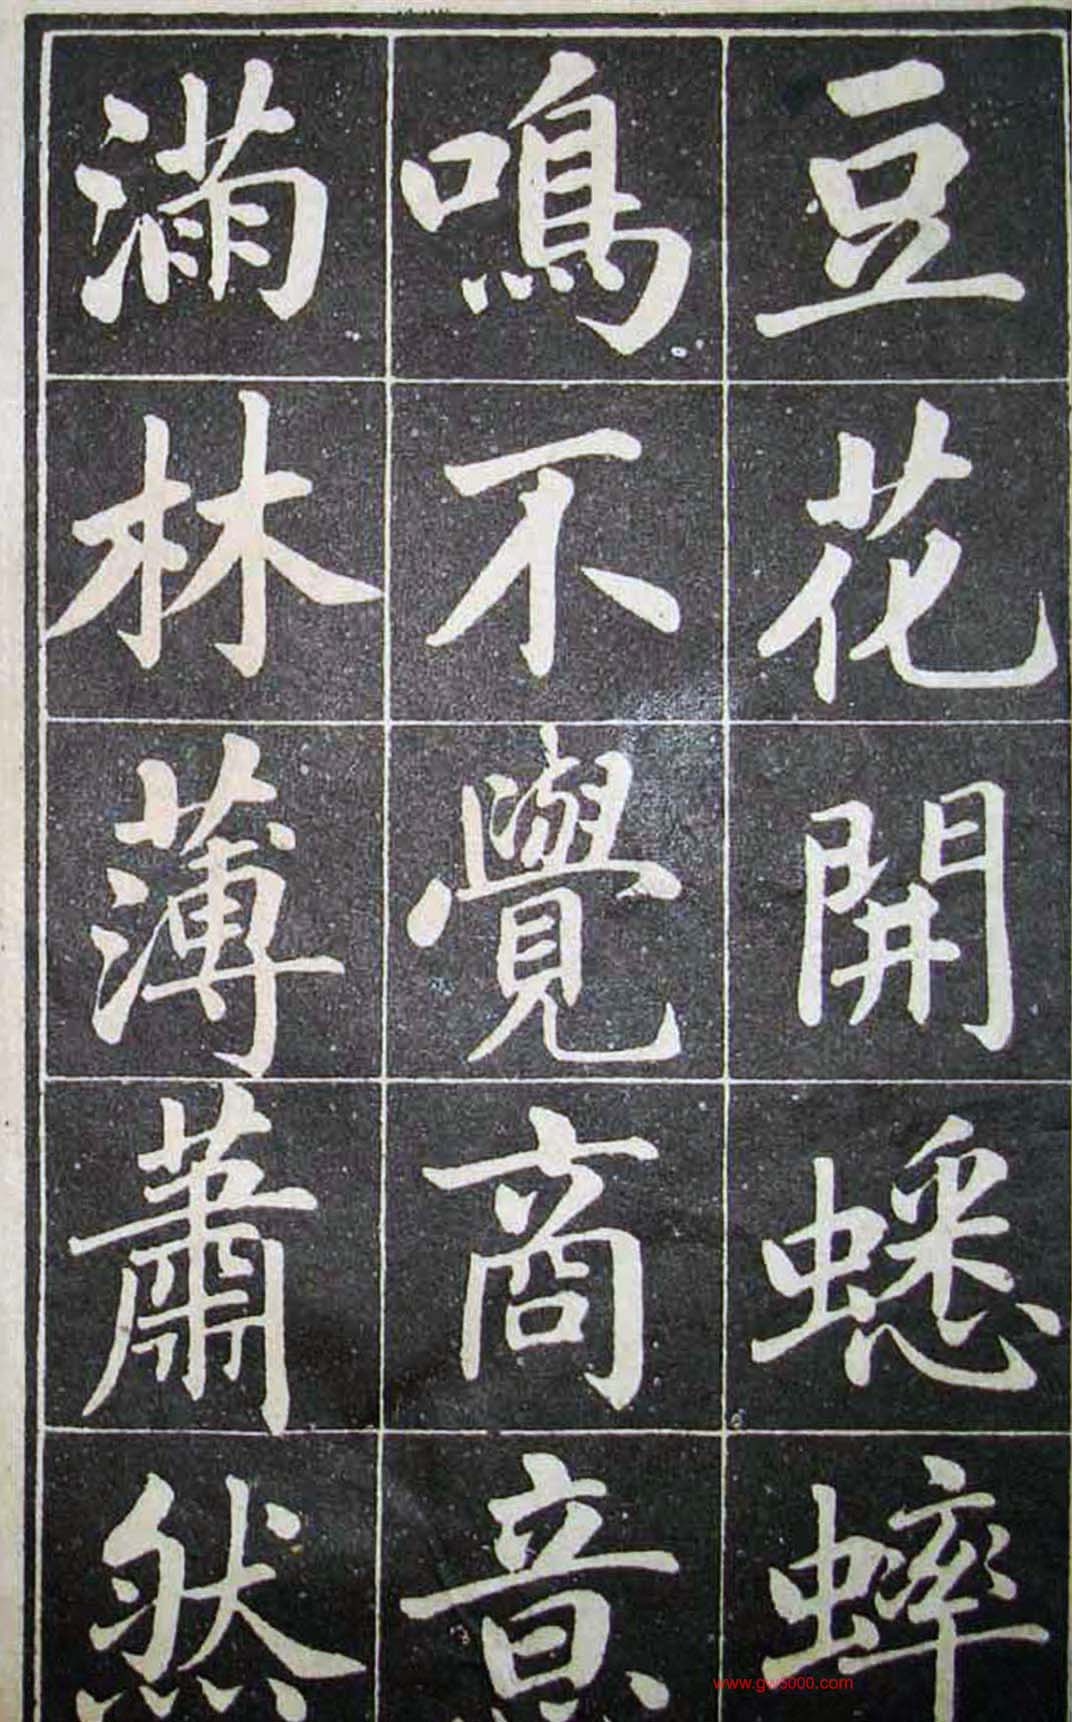 豆花開蟋蟀
鳴不覺商意
滿林薄蕭然
www.gw5000.com